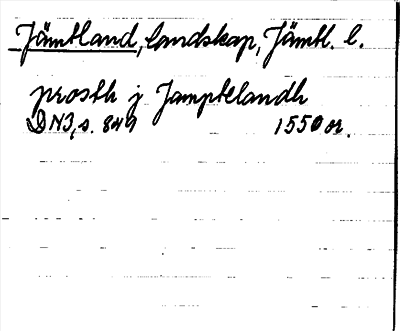 Jämtland, landskap, Jämtl. l.
prosth j Jamptelandh
DN3, s. 849 1550 or.